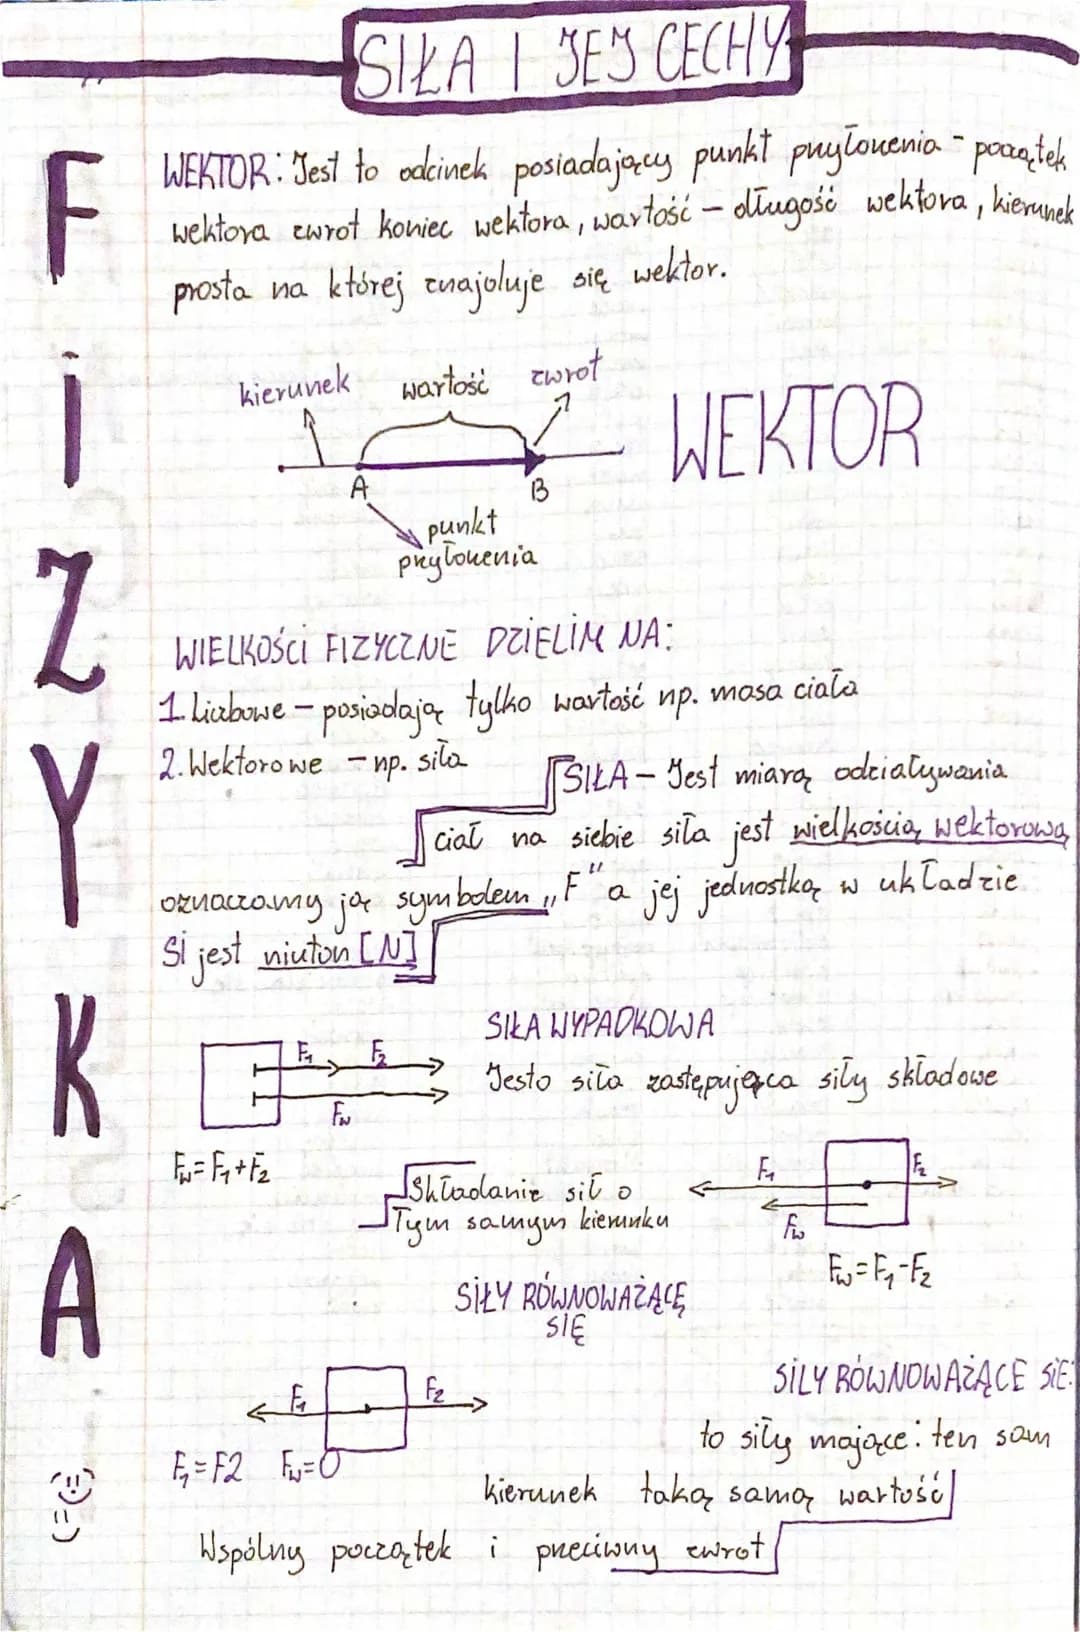 SIŁA I JEJ CECHY
FiZYKA
WEKTOR: Jest to odcinek posiadający punkt przyłożenia - początek
wektora zwrot koniec wektora, wartość – długość wektora, kierunek
prosta na której znajduje się wektor.
kierunek wartość zwrot
WEKTOR
A B
punkt
przyłożenia
WIELKOŚCi FIZYCZNE DZiELiM NA:
1. Liczbowe – posiadają tylko wartość np. masa ciała
2. Wektorowe – np. siła
SIŁA – Jest miarą odziaływania
ciał na siebie siła jest wielkością wektorową
oznaczamy ją symbolem „F" a jej jednostką w układzie
Si jest niuton [N]
SIŁA WYPADKOWA
F1 F2
Jesto siła zastępująca siły składowe
Fw
Fw=F1+F2
Składanie sił o
Tym samym kierunku
F1 F2
Fw
Fw=F1-F2
SIŁY RÓWNOWAŻĄCĘ
SIĘ
F1 F2
F1=F2 Fw=0
SiLY RÓWNOWAŻĄCE SiE:
to siły mające: ten sam
kierunek taką samą wartość
Wspólny początek i przeciwny zwrot